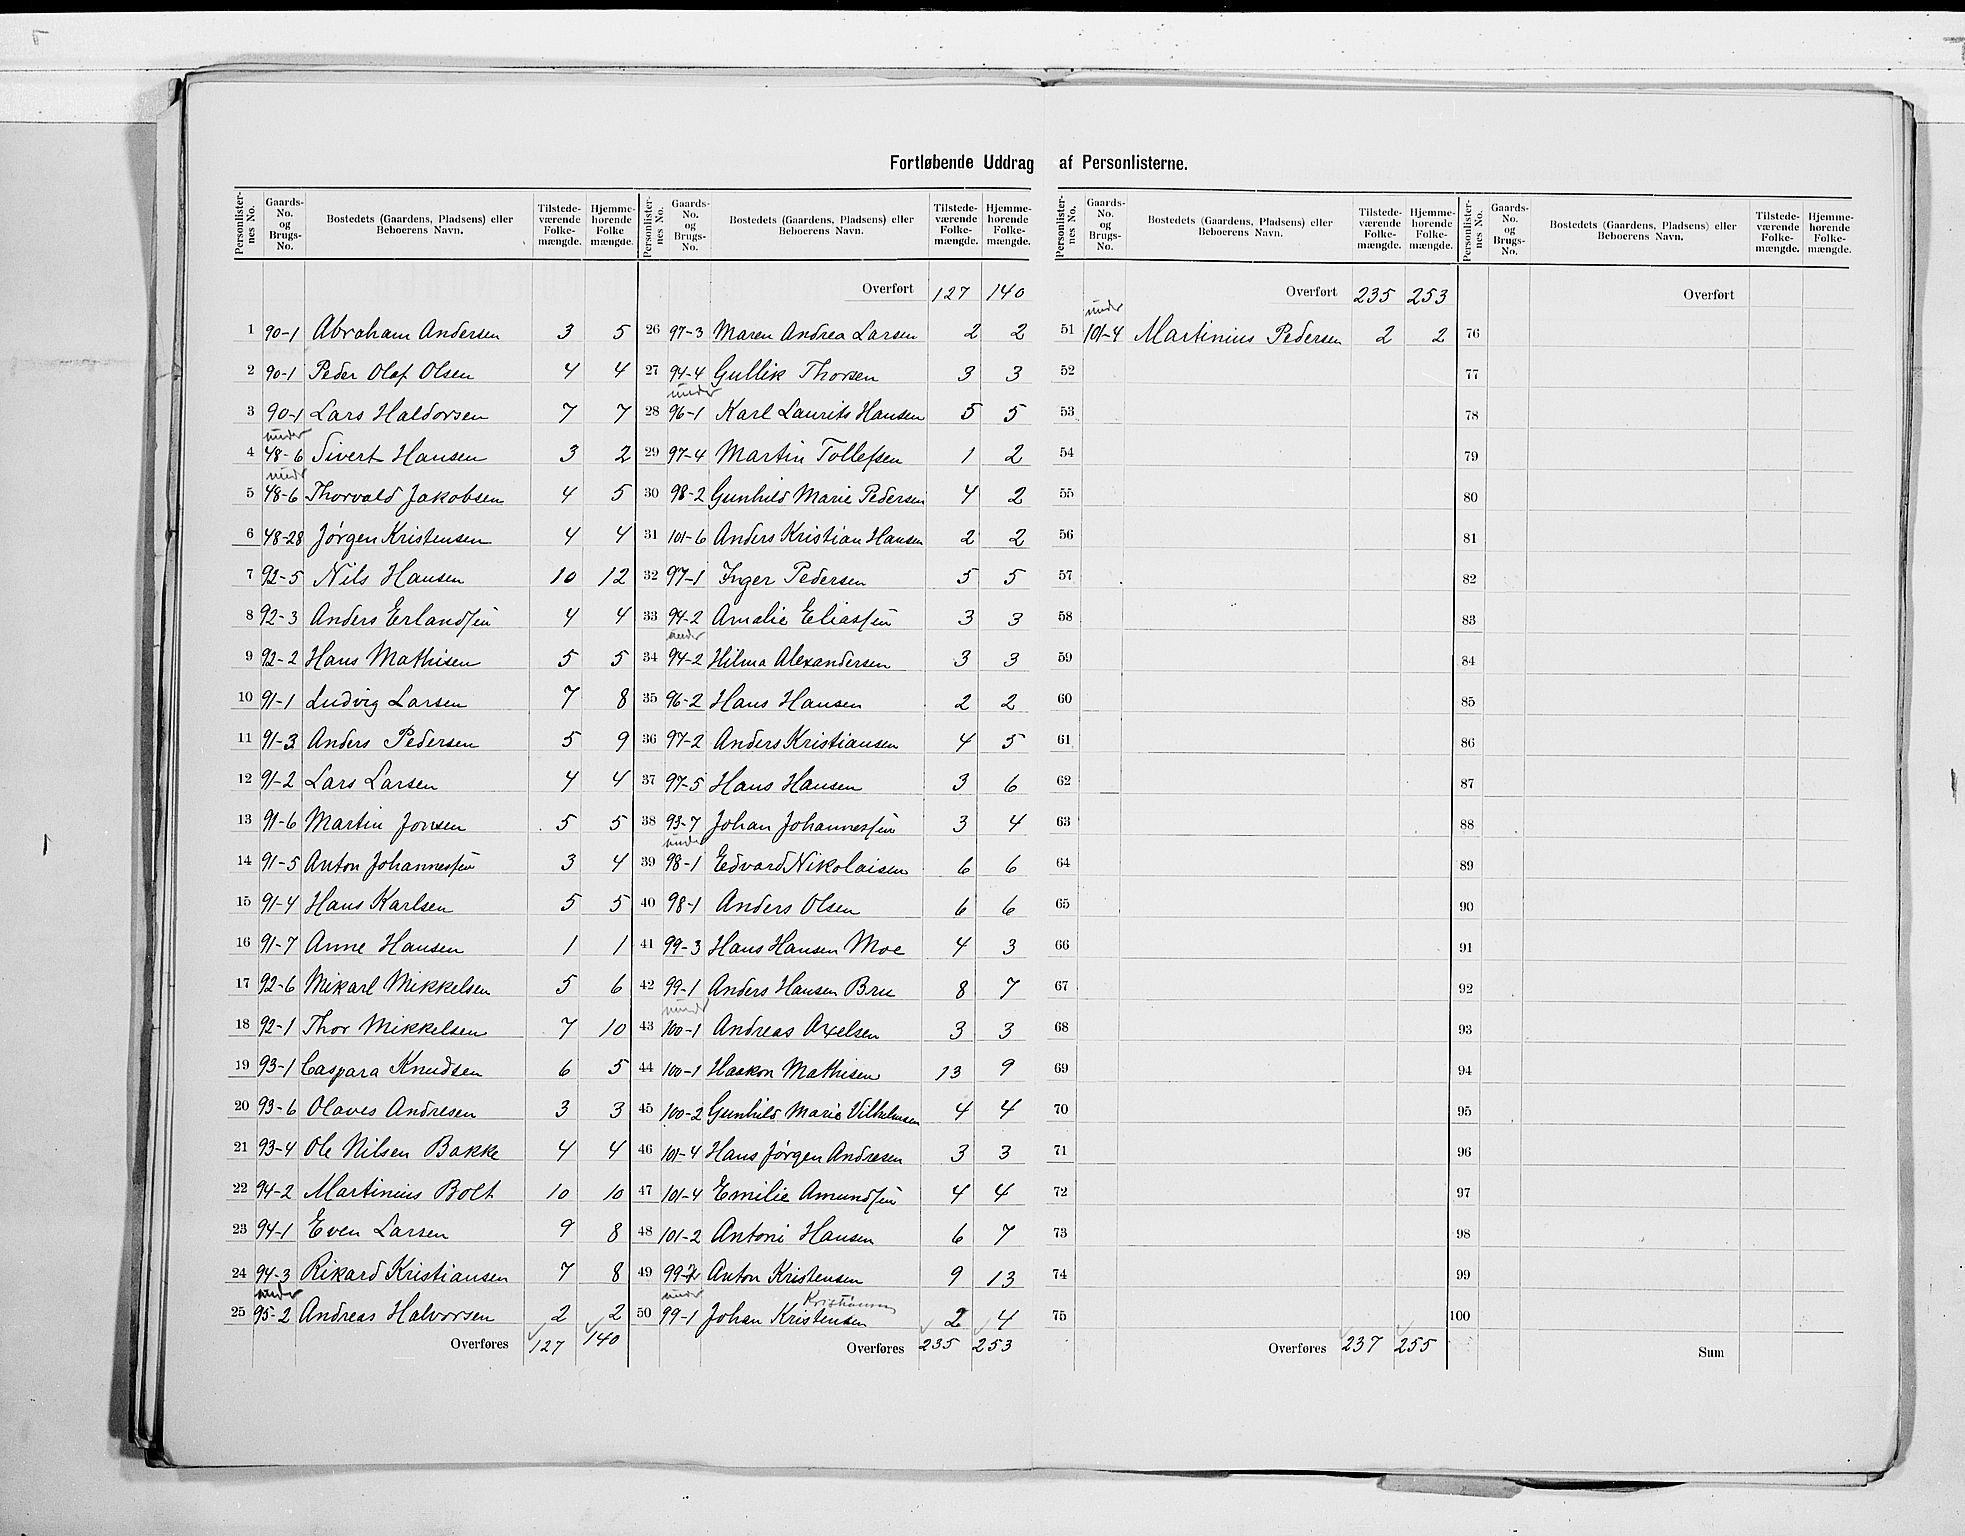 Fortløbende Uddrag af Personlisterne.
Personlister-nes No. | Gaards-No. og Brugs-No. | Bostedets (Gaardens, Pladsens) eller Beboerens Navn. | Tilstede-værende Folke-mængde. | Hjemme-hørende Folke mængde.
1 90-1 Abraham Andersen 3 5
2 90-1 Peder Olaf Olsen 4 4
3 90-1 Lars Haldorsen 7 7
4 under 48-6 Sivert Hansen 3 2
5 under 48-6 Thorvald Jakobsen 4 5
6 48-28 Jørgen Kristensen 4 4
7 92-5 Nils Hansen 10 12
8 92-3 Anders Erlandsen 4 4
9 92-2 Hans Mathisen 5 5
10 91-1 Ludvig Larsen 7 8
11 91-3 Anders Pedersen 5 9
12 91-2 Lars Larsen 4 4
13 91-6 Martin Jonsen 5 5
14 91-5 Anton Johannessen 3 4
15 91-4 Hans Karlsen 5 5
16 91-7 Anne Hansen 1 1
17 92-6 Mikael Mikkelsen 5 6
18 92-1 Thor Mikkelsen 7 10
19 93-1 Caspara Knudsen 6 5
20 93-6 Olaves Andresen 3 3
21 93-4 Ole Nilsen Bakke 4 4
22 94-2 Martinius Bolt 10 10
23 94-1 Even Larsen 9 8
24 94-3 Rikard Kristiansen 7 8
25 under 95-2 Andreas Halvorsen 2 2
Overføres 127 140
Personlister-nes No. | Gaards-No. og Brugs-No. | Bostedets (Gaardens, Pladsens) eller Beboerens Navn. | Tilstede-værende Folke-mængde. | Hjemme-hørende Folke-mængde.
Overført 127 140
26 97-3 Maren Andrea Larsen 2 2
27 94-4 Gullik Thorsen 3 3
28 under 96-1 Karl Laurits Hansen 5 5
29 97-4 Martin Tollefsen 1 2
30 98-2 Gunhild Marie Pedersen 4 2
31 101-6 Anders Kristian Hansen 2 2
32 97-1 Inger Pedersen 5 5
33 94-2 Amalie Eliassen 3 3
34 under 94-2 Hilma Alexandersen 3 3
35 96-2 Hans Hansen 2 2
36 97-2 Anders Kristiansen 4 5
37 97-5 Hans Hansen 3 6
38 93-7 Johan Johannessen 3 4
39 under 98-1 Edvard Nikolaisen 6 6
40 98-1 Anders Olsen 6 6
41 99-3 Hans Hansen Moe 4 3
42 99-1 Anders Hansen Bru 8 7
43 under 100-1 Andreas Axelsen 3 3
44 100-1 Haakon Mathisen 13 9
45 100-2 Gunhild Marie Vilhelmsen 4 4
46 101-4 Hans Jørgen Andresen 3 3
47 101-4 Emilie Amundsen 4 4
48 101-2 Antoni Hansen 6 7
49 99-2 Anton Kristensen 9 13
50 under 99-1 Johan Kristensen Kristiansen 2 4
Overføres 235 253
Personlister-nes No. | Gaards-No. og Brugs-No. | Bostedets (Gaardens, Pladsens) eller Beboerens Navn. | Tilstede-værende Folke-mængde. | Hjemme-hørende Folke-mængde.
Overført 235 253
51 under 101-4 Martinius Pedersen 2 2
52
53
54
55
56
57
58
59
60
61
62
63
64
65
66
67
68
69
70
71
72
73
74
75
Overføres 237 255
Personlister-nes No. | Gaards-No. og Brugs-No. | Bostedets (Gaardens, Pladsens) eller Beboerens Navn. | Tilstede-værende Folke-mængde. | Hjemme-hørende Folke-mængde.
Overført
76
77
78
79
80
81
82
83
84
85
86
87
88
89
90
91
92
93
94
95
96
97
98
99
100
Sum